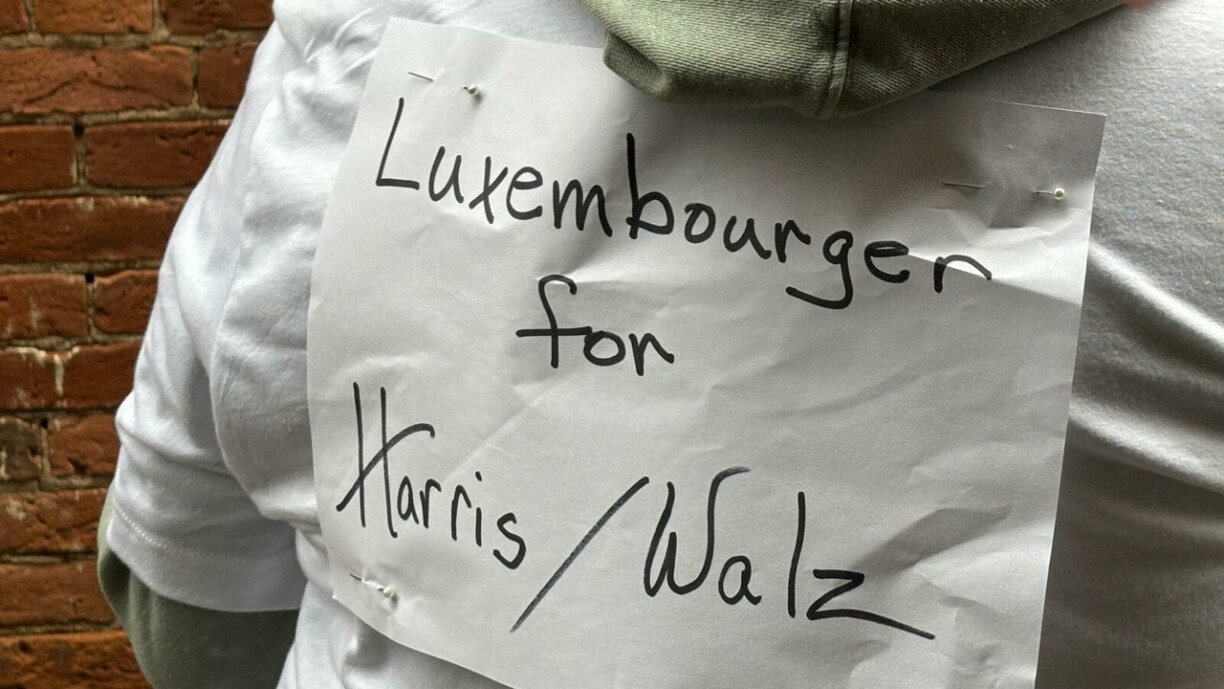 Luxembourger
for
Harris/Walz